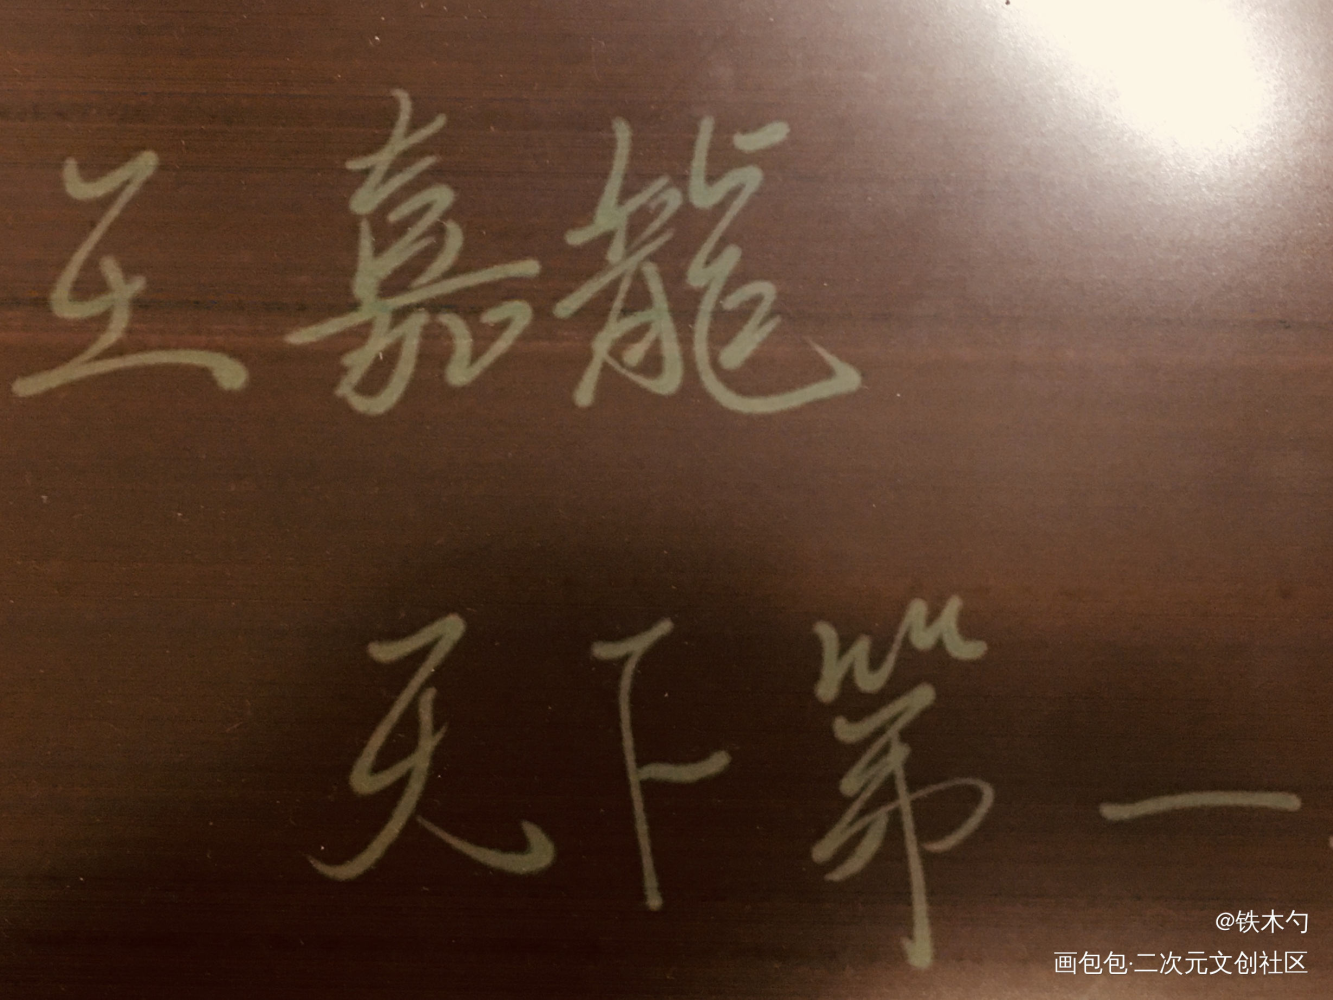 王嘉龍
天下第一
@铁木勺
画包包·二次元文创社区